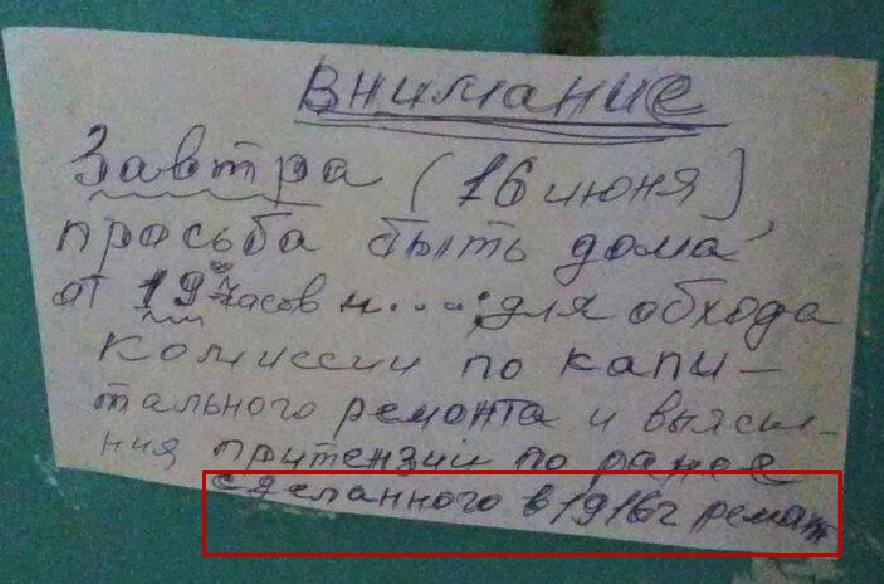 Внимание
Завтра (16 июня)
просьба быть дома
от 19 часов и.... для обхода
комиссии по капи-
тального ремонта и выясн-
ния притензии по ранее
сделанного в 1916г ремонт